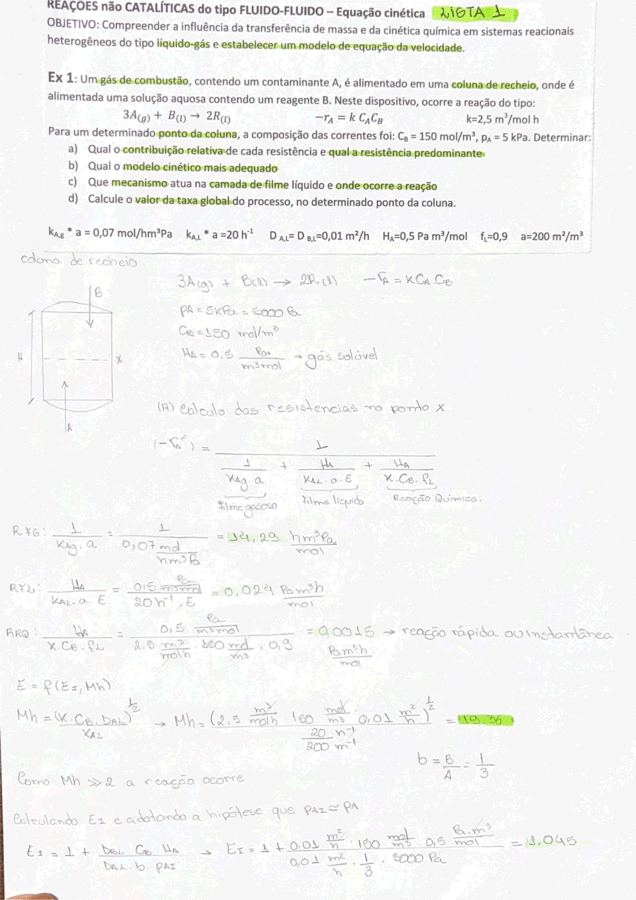 REAÇÕES não CATALÍTICAS do tipo FLUIDO-FLUIDO – Equação cinética LISTA 1
OBJETIVO: Compreender a influência da transferência de massa e da cinética química em sistemas reacionais
heterogêneos do tipo líquido-gás e estabelecer um modelo de equação da velocidade.
Ex 1: Um gás de combustão, contendo um contaminante A, é alimentado em uma coluna de recheio, onde é
alimentada uma solução aquosa contendo um reagente B. Neste dispositivo, ocorre a reação do tipo:
3A(g) + B(l) → 2R(l) −rA = k CACB k=2,5 m³/mol h
Para um determinado ponto da coluna, a composição das correntes foi: CB = 150 mol/m³, pA = 5 kPa. Determinar:
a) Qual o contribuição relativa de cada resistência e qual a resistência predominante
b) Qual o modelo cinético mais adequado
c) Que mecanismo atua na camada de filme líquido e onde ocorre a reação
d) Calcule o valor da taxa global do processo, no determinado ponto da coluna.
kA,g * a = 0,07 mol/hm³Pa kA,L * a =20 h⁻¹ D A,L= D B,L=0,01 m²/h HA=0,5 Pa m³/mol fL=0,9 a=200 m²/m³
coluna de recheio
3A(g) + B(l) → 2R(l) −rA = k CA CB
B
PA = 5kPa = 5000 Pa
CB = 150 mol/m³
H X
HA = 0,5 Pa/m³mol → gás solúvel
A
(A) Calculo das resistencias no ponto X
(−rA'') = 1 / (1/kAg.a + HA/kAL.a.E + HA/k.CB.fL)
filme gasoso filme líquido Reação Química.
RXG: 1/kAg.a = 1/0,07 mol/hm³Pa = 14,29 hm³Pa/mol
RXL: HA/kAL.a.E = 0,5 Pa/m³mol / 20 h⁻¹.E = 0,024 Pam³h/mol
RRQ: HA/k.CB.fL = 0,5 Pa/m³mol / 2,5 m³/molh . 150 mol/m³ . 0,9 = 0,0015 → reação rápida ou instantânea
Pam³h/mol
E = f(EI, Mh)
Mh = (k.CB.DAL)^1/2 / kAL → Mh = (2,5 m³/molh 150 mol/m³ 0,01 m²/h)^1/2 / (20 h⁻¹/200 m⁻¹) = 19,36
b = B/A = 1/3
Como Mh >> 2 a reação ocorre
Calculando EI e adotando a hipótese que PAI ≃ PA
EI = 1 + DBL CB HA / DAL b PAI → EI = 1 + 0,01 m²/h . 150 mol/m³ 0,5 Pa.m³/mol / 0,01 m²/h . 1/3 . 5000 Pa = 1,045